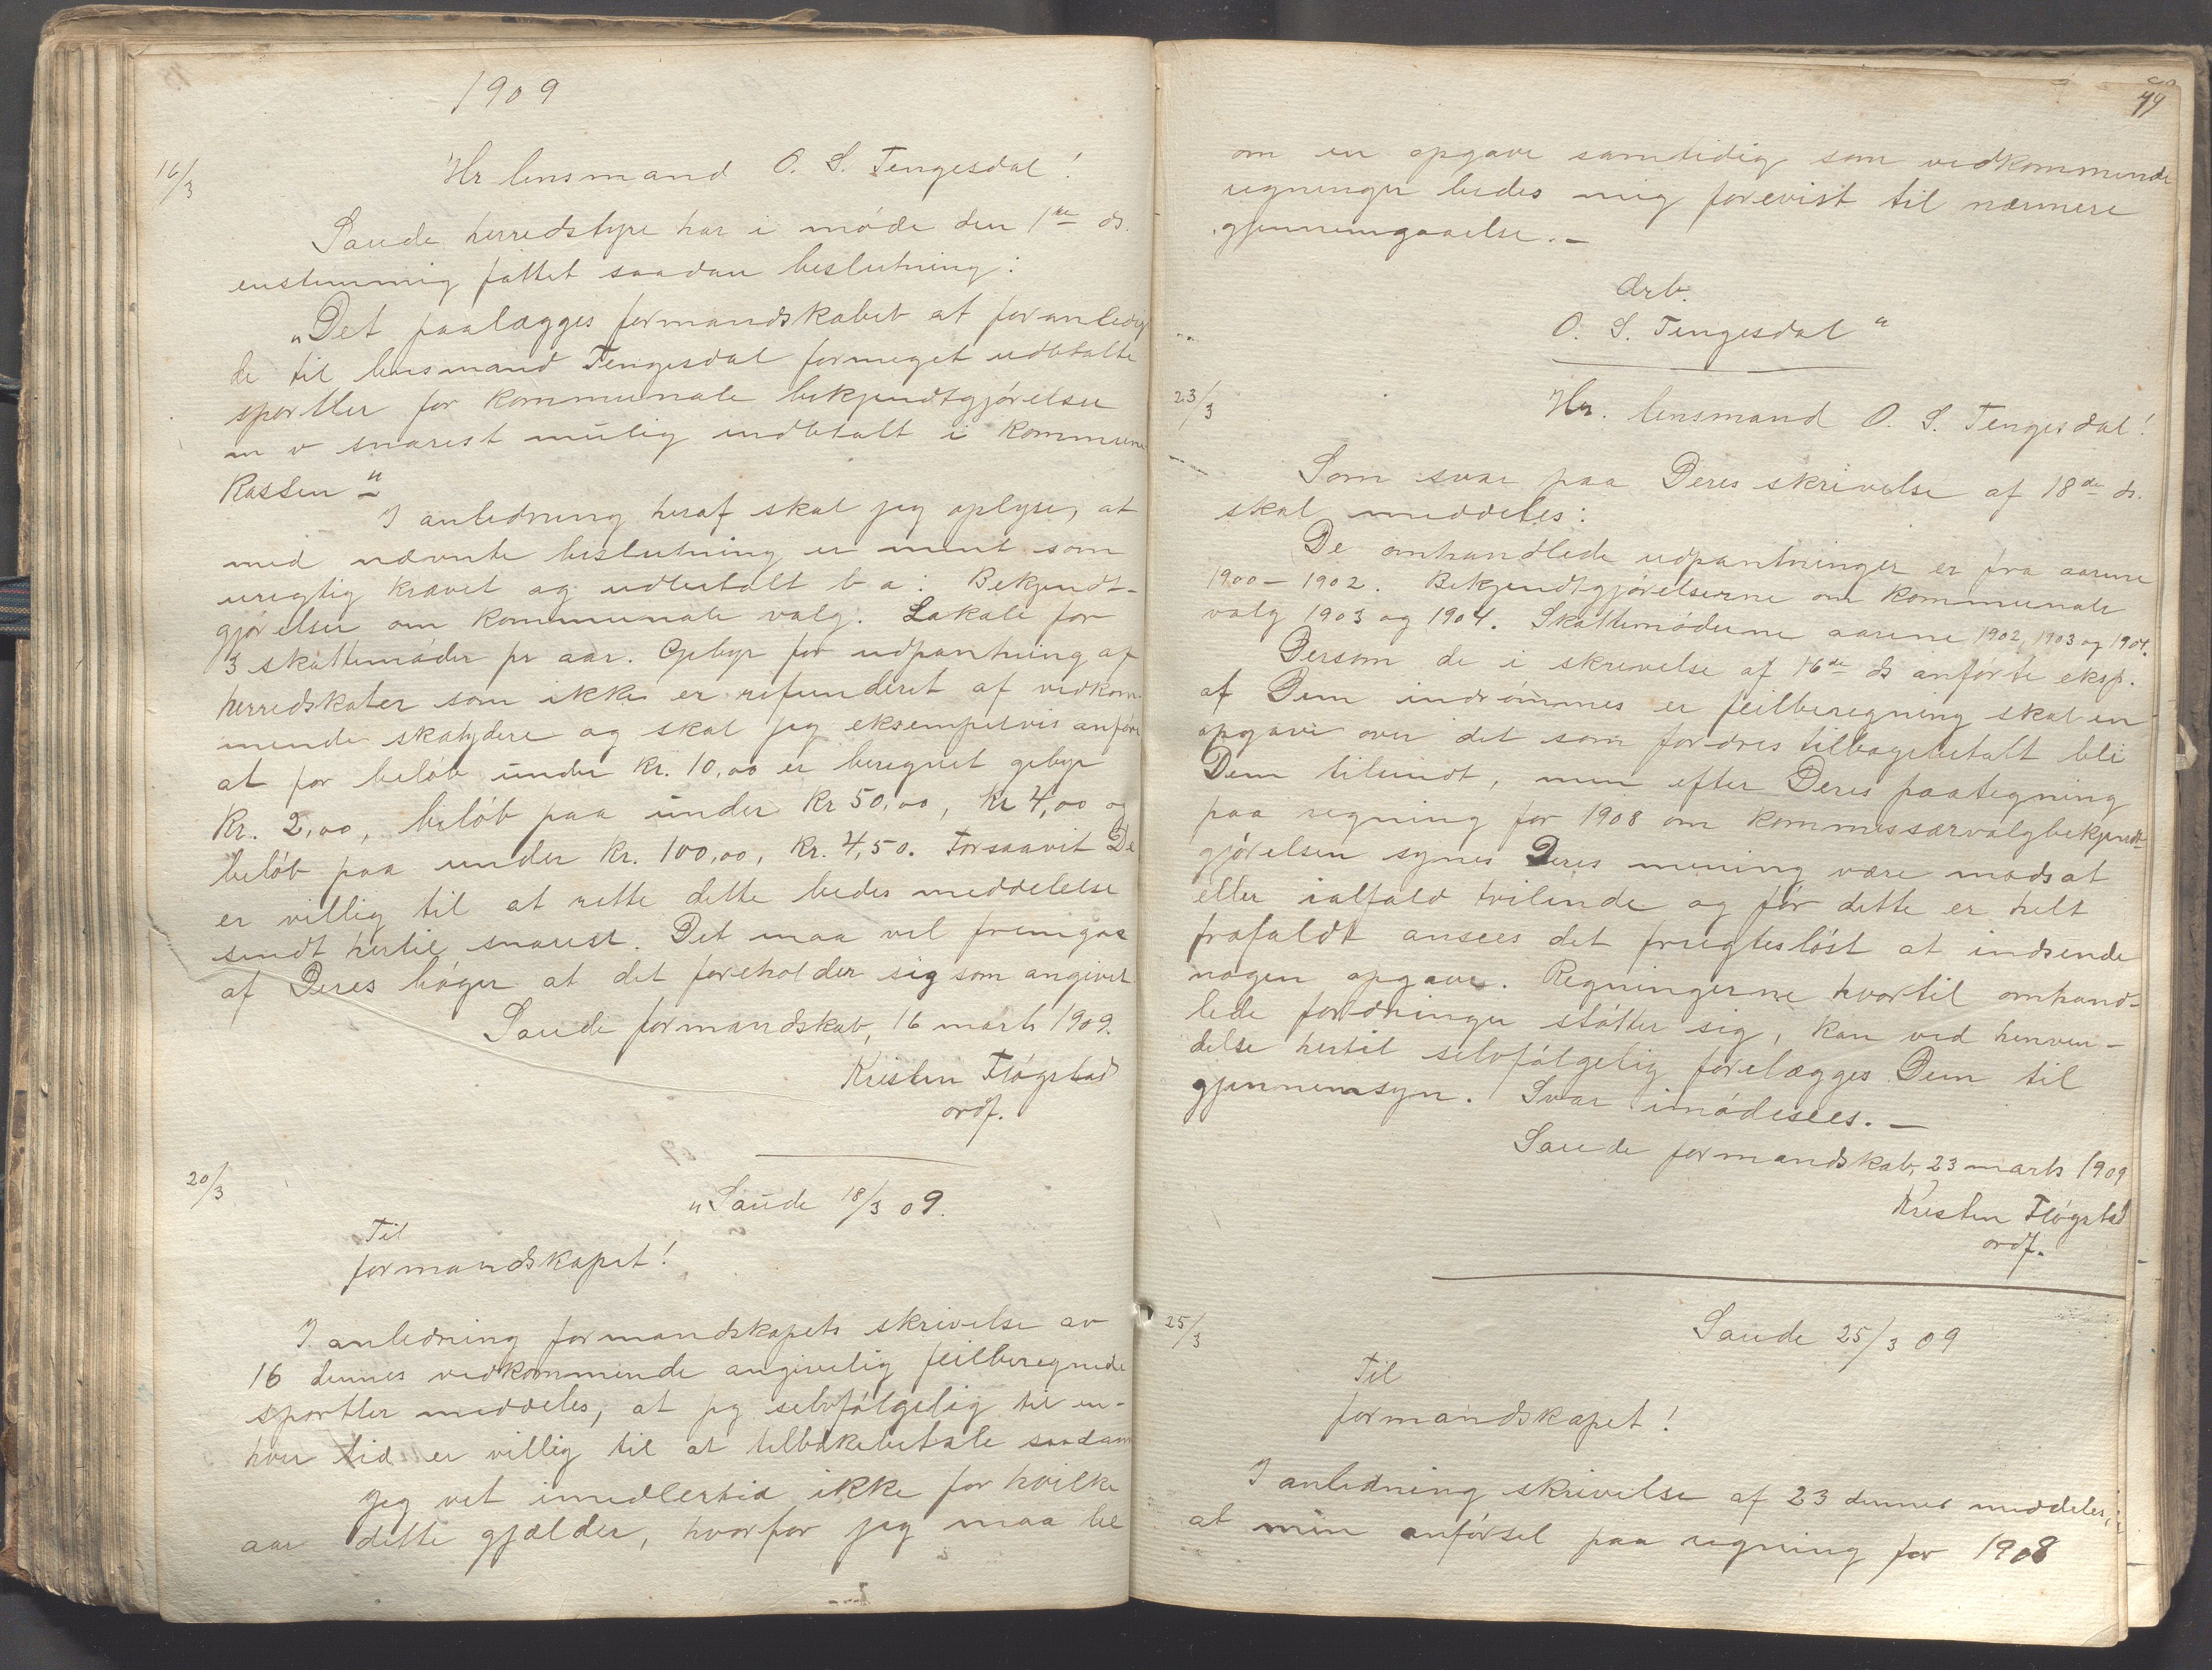 1909
16/3
Hr lensmand O. S. Tengesdal!
Saude herredstyre har i møde den 1ste ds.
enstemmig fattet saadan beslutning:
„Det paalægges formandskabet at foranledige
de til lensmand Tengesdal formeget udbetalte
sportler for kommunale bekjendtgjørelser
m v snarest mulig indbetalt i kommune
kassen"
I anledning heraf skal jeg oplyse, at
med nævnte beslutning er ment som
urigtig krævet og udbetalt b a: Bekjendt-
gjørelser om kommunale valg. Lokale for
3 skattemøder pr aar. Gebyr for udpantning af
herredskater som ikke er refunderet af vedkom-
mende skatydere og skal jeg eksempelvis anføre
at for beløb under kr. 10,00 er beregnet gebyr
kr. 2,00, beløb paa under kr 50,00, kr 4,00 og
beløb paa under kr. 100,00, kr. 4,50. Forsaavit De
er villig til at rette dette bedes meddelelse
sendt hertil snarest. Det maa vel fremgaa
af Deres bøger at det foreholder sig som angivet
Saude formandskab, 16 marts 1909.
Kristen Fløgstad
ordf.
20/3
„Saude 18/3 09.
Til
formandskapet!
I anledning formandskapets skrivelse av
16 dennes vedkommende angivelig feilberegnede
sportler meddeles, at jeg selvfølgelig til en-
hver tid er villig til at tilbakebetale saadan
Jeg vet imidlertid ikke for hvilke
aar dette gjælder, hvorfor jeg maa be
49
om en opgave samtidig som vedkommende
regninger bedes mig forevist til nærmere
gjennemgaaelse.-
Ærb.
O. S. Tengesdal"
23/3
Hr. lensmand O. S. Tengesdal!
Som svar paa Deres skrivelse af 18de ds.
skal meddeles:
De omhandlede udpantninger er fra aarene
1900-1902. Bekjendtgjørelserne om kommunale
valg 1903 og 1904. Skattemøderne aarene 1902, 1903 og 1904.
Dersom de i skrivelse af 16de ds anførte eksp.
af Dem indrømmes er feilberegning skal en
opgave over det som fordres tilbagebetalt bli
Dem tilsendt, men efter Deres paategning
paa regning for 1908 om kommissærvalgbekjendt-
gjørelsen synes Deres mening være modsat
eller ialfald tvilende og før dette er helt
frafaldt ansees det frugtesløst at indsende
nogen opgave. Regningerne hvortil omhand-
lede fordringer støtter sig, kan ved henven-
delse hertil selvfølgelig forelægges Dem til
gjennemsyn. Svar imødesees.-
Saude formandskab, 23 marts 1909
Kristen Fløgstad
ordf.
25/3
Saude 25/3 09
Til
formandskapet!
I anledning skrivelse af 23 dennes meddeles,
at min anførsel paa regning for 1908